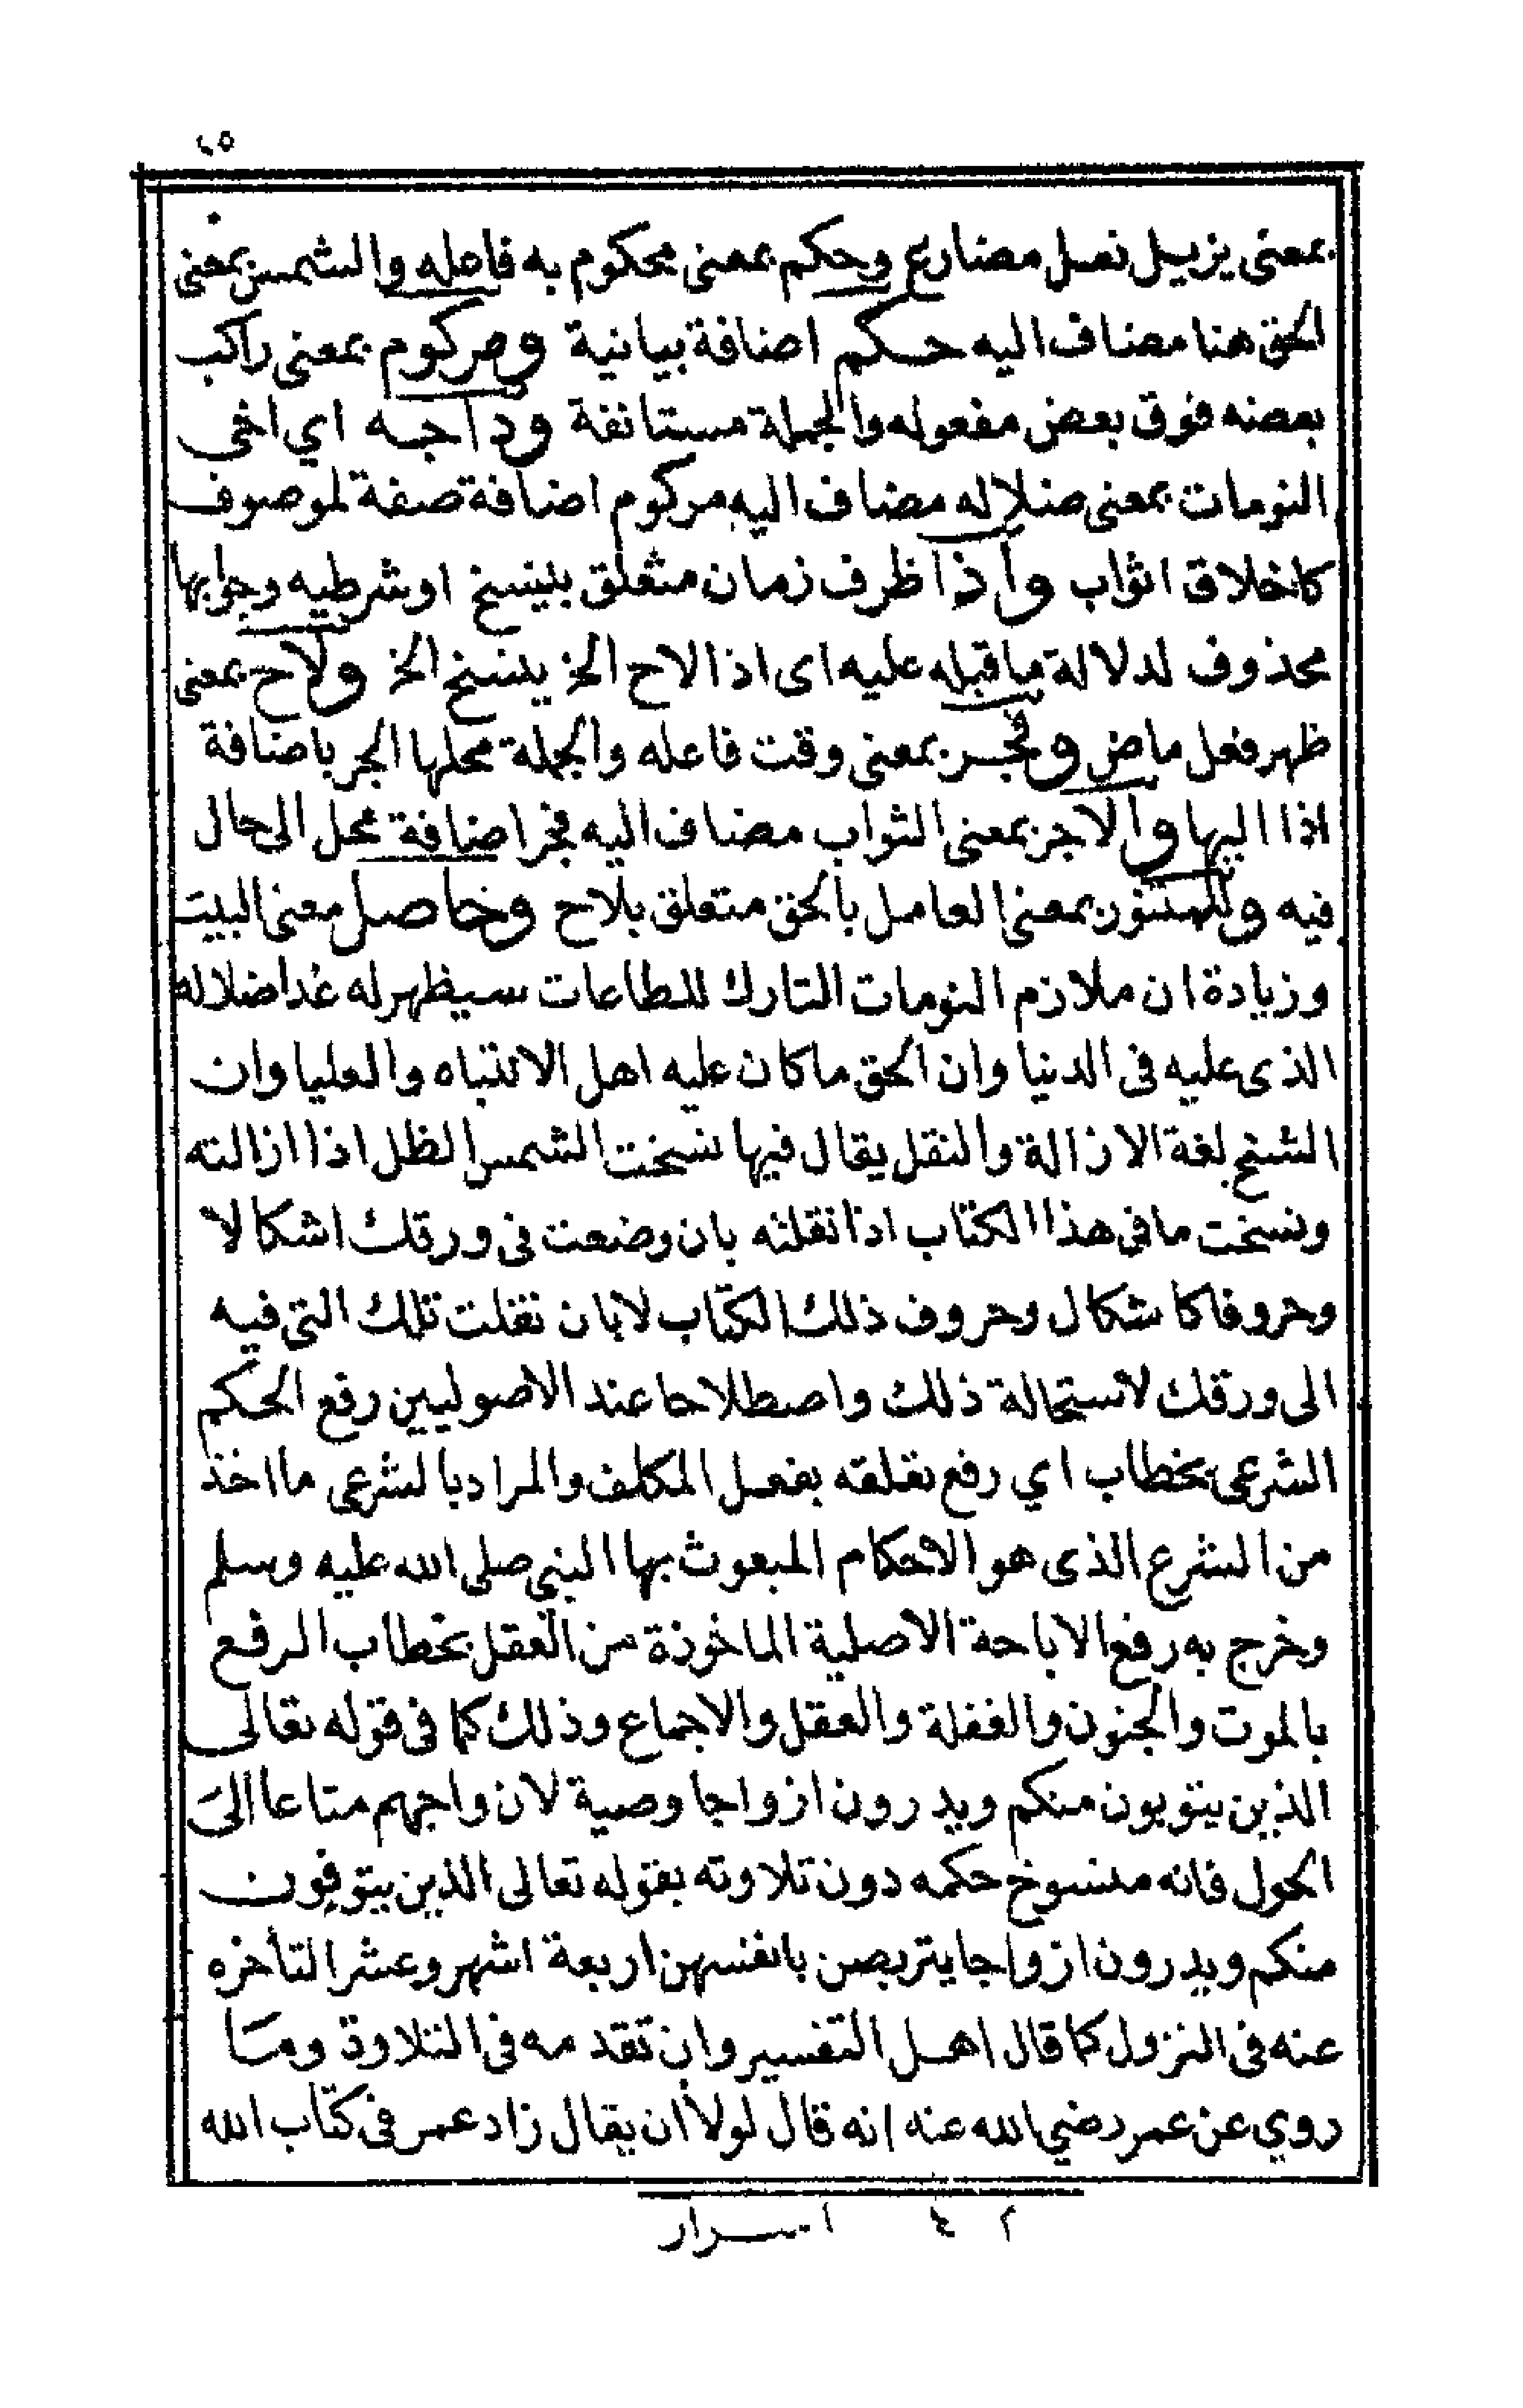 ٤٥
بمعنى يزيل نعل مضارع وحكم بمعنى محكوم به فاعله والشمس بمعنى
الحق هنا مضاف اليه حكم اضافة بيانية ومركوم بمعنى راكب
بعضه فوق بعض مفعوله والجملة مستانفة وداجه اي اخي
النومات بمعنى ضلاله مضاف اليه مركوم اضافة صفة لموصوف
كاخلاق اثواب واذا ظرف زمان متعلق بينسخ اوشرطيه وجوابها
محذوف لدلالة ماقبله عليه اى اذا لاح الخ ينسخ الخ ولاح بمعنى
ظهر فعل ماض وفجر بمعنى وقت فاعله والجملة محلها الجر باضافة
اذا اليها والاجر بمعنى الثواب مضاف اليه فجر اضافة محل الى حال
فيه وللمهتور بمعنى العامل بالحق متعلق بلاح وحاصل معنى البيت
وزيادة ان ملازم النومات التارك للطاعات سيظهر له غدا ضلاله
الذى عليه فى الدنيا وان الحق ماكان عليه اهل الانتباه والعليا وان
النسخ لغة الازالة والنقل يقال فيها نسخت الشمس الظل اذا ازالته
ونسخت مافى هذا الكتاب اذا نقلته بان وضعت فى ورقك اشكالا
وحروفا كاشكال وحروف ذلك الكتاب لابان نقلت تلك التى فيه
الى ورقك لاستحالة ذلك واصطلاحا عند الاصوليين رفع الحكم
الشرعى بخطاب اي رفع تعلقه بفعل المكلف والمراد بالشرعى ما اخذ
من الشرع الذى هو الاحكام المبعوث بها النبي صلى الله عليه وسلم
وخرج به رفع الاباحة الاصلية الماخوذة من العقل بخطاب الرفع
بالموت والجنون والغفلة والعقل والاجماع وذلك كما فى قوله تعالى
الذين يتوبون منكم ويدرون ازواجا وصية لان واجهم متاعا الى
الحول فانه منسوخ حكمه دون تلاوته بقوله تعالى الذين يتوفون
منكم ويدرون ازواجا يتربصن بانفسهن اربعة اشهر وعشر التأخره
عنه فى النزول كما قال اهل التفسير وان تقدمه فى التلاوة وما
روي عن عمر رضي الله عنه انه قال لولا ان يقال زاد عمر فى كتاب الله
٢ ٤ اسرار